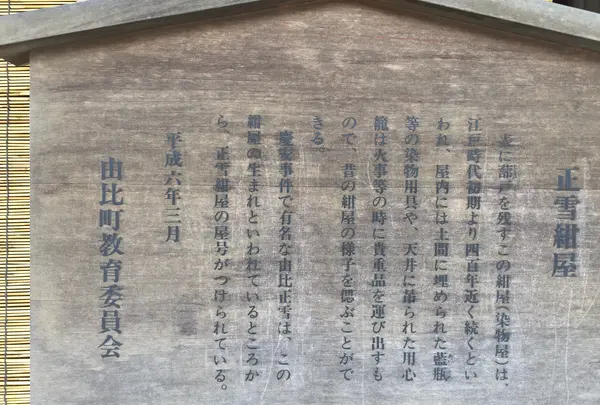 正雪紺屋
表に蔀戸を残すこの紺屋(染物屋)は、
江戸時代初期より四百年近く続くとい
われ、屋内には土間に埋められた藍瓶
等の染物用具や、天井に吊られた用心
籠は火事等の時に貴重品を運び出すも
ので、昔の紺屋の様子を偲ぶことがで
きる。
慶安事件で有名な由比正雪は、この
紺屋の生まれといわれているところか
ら、正雪紺屋の屋号がつけられている。
平成六年三月
由比町教育委員会